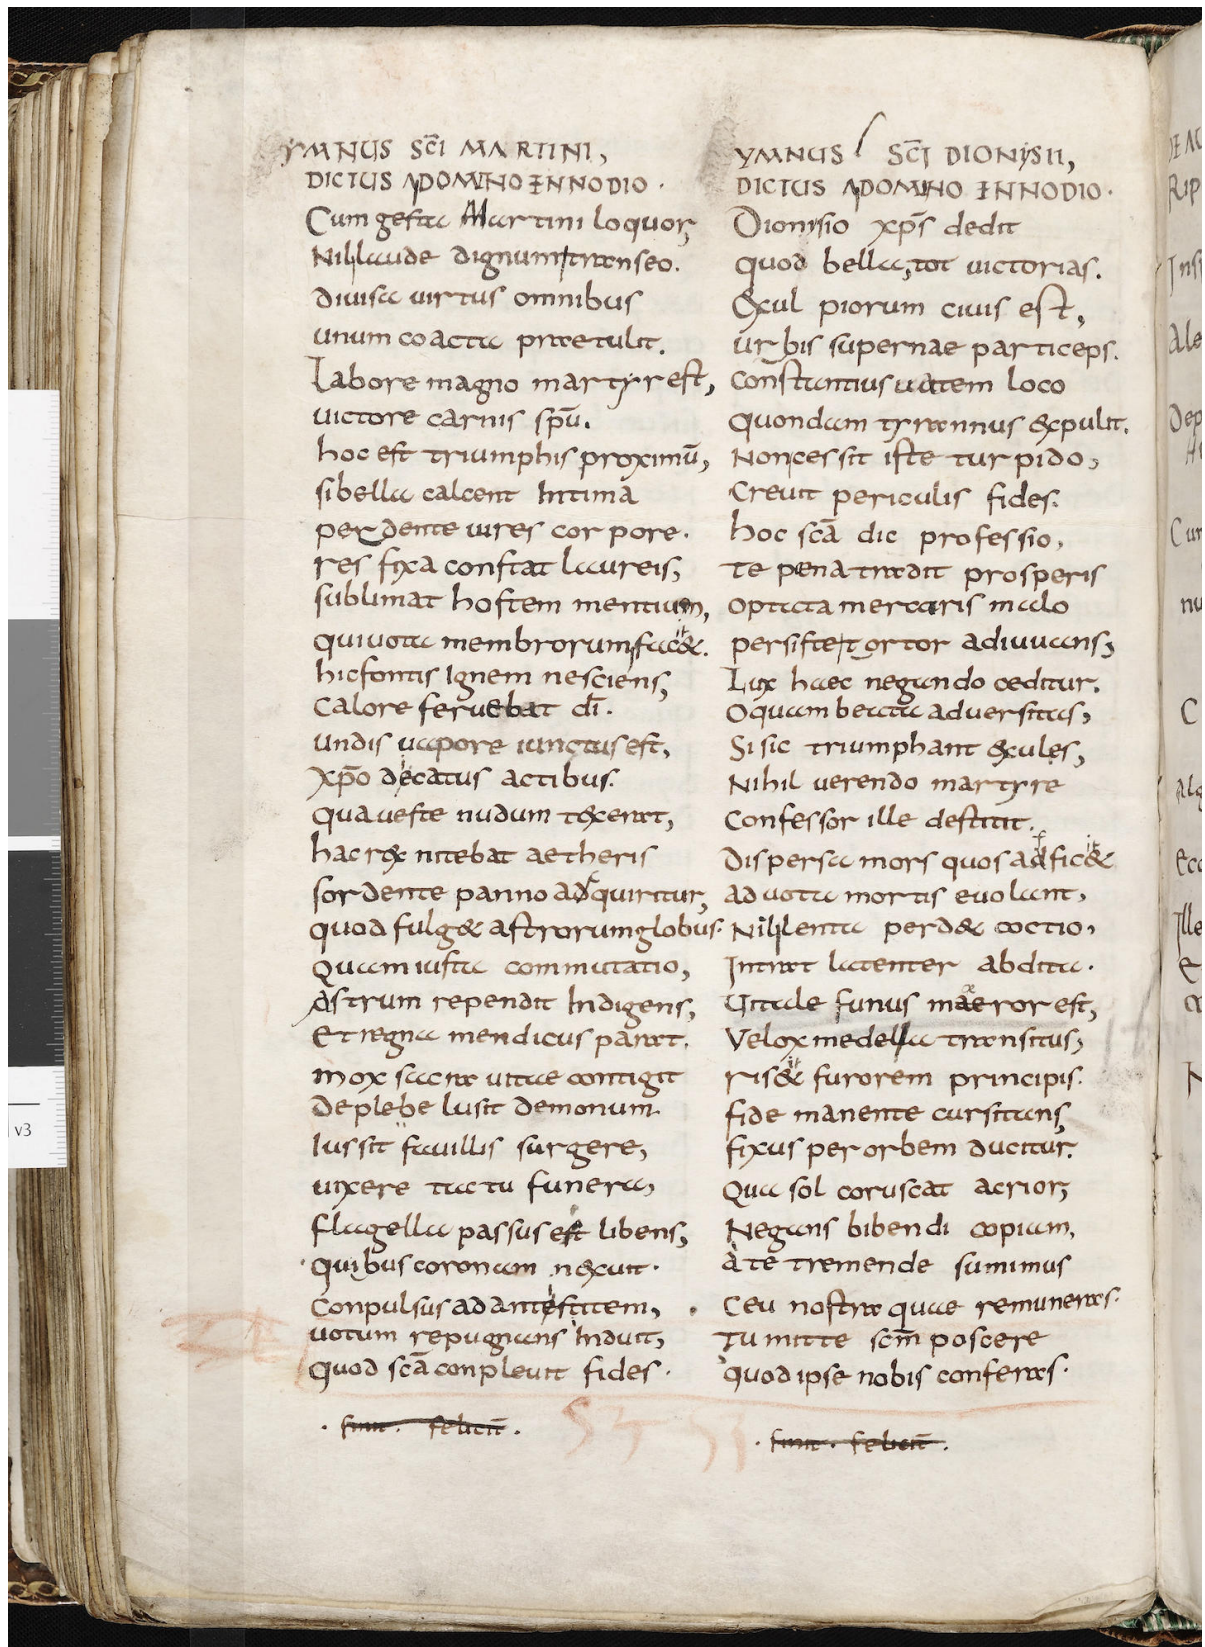 YMNUS SC̄I MARTINI,
DICTUS A DOMINO ENNODIO.
Cum gesta Martini loquor,
Nil laude dignum transeo.
diuisa uirtus omnibus
unum coacta praetulit.
Labore magno martyr est,
uictore carnis spū.
hoc est triumphis proximū,
si bella calcent intima
perdente uires corpore.
res fixa constat laureis,
sublimat hostem mentium,
qui uota membrorum facit&.
hic fontis ignem nesciens,
calore feruebat dī.
undis uapore iunctus est,
xp̄o dicatus actibus.
qua ueste nudum texerat,
hac rex nitebat aetheris
sordente panno adquiritur,
quod fulg& astrorum globus.
Quam iusta commutatio,
Astrum rependit indigens,
Et regna mendicus parat.
mox sacrae uitae contigit
de plebe lusit demonum.
Iussit fauillis surgere,
uixere tactu funera,
flagella passus est libens,
quibus coronam nexuit.
Conpulsus ad antestitem,
uotum repugnans induit,
quod scā conpleuit fides.
. finit. feliciť.
YMNUS SC̄I DIONYSII,
DICTUS A DOMINO ENNODIO.
Dionysio xp̄s dedit
quod bella, tot uictorias.
&xul piorum ciuis est,
urbis supernae particeps.
constantius uatem loco
quondam tyrannus &xpulit.
Non cessit iste turpido,
Creuit periculis fides.
hoc scā dic professio,
te pena tradit prosperis
optata mercaris malo
persiste tortor adiuuans,
Lux haec negando ceditur.
O quam beata aduersitas,
Si sic triumphant &xules,
Nihil uerendo martyre
Confessor ille destitit.
Dispersa mors quos adfic&
ad uota mortis euolant,
Nil lenta perd& coctio,
Intrat latenter abdita.
Uitale funus maeror est,
Velox medella transitus,
ris& furorem principis.
fide manente cursitans,
fixus per orbem ducitur.
Qua sol coruscat acrior,
Negans bibendi copiam,
A te tremende sumimus
Ceu nostra quae remuneras.
Tu mitte scm̄ poscere
quod ipse nobis conferas.
. finit. feliciť.